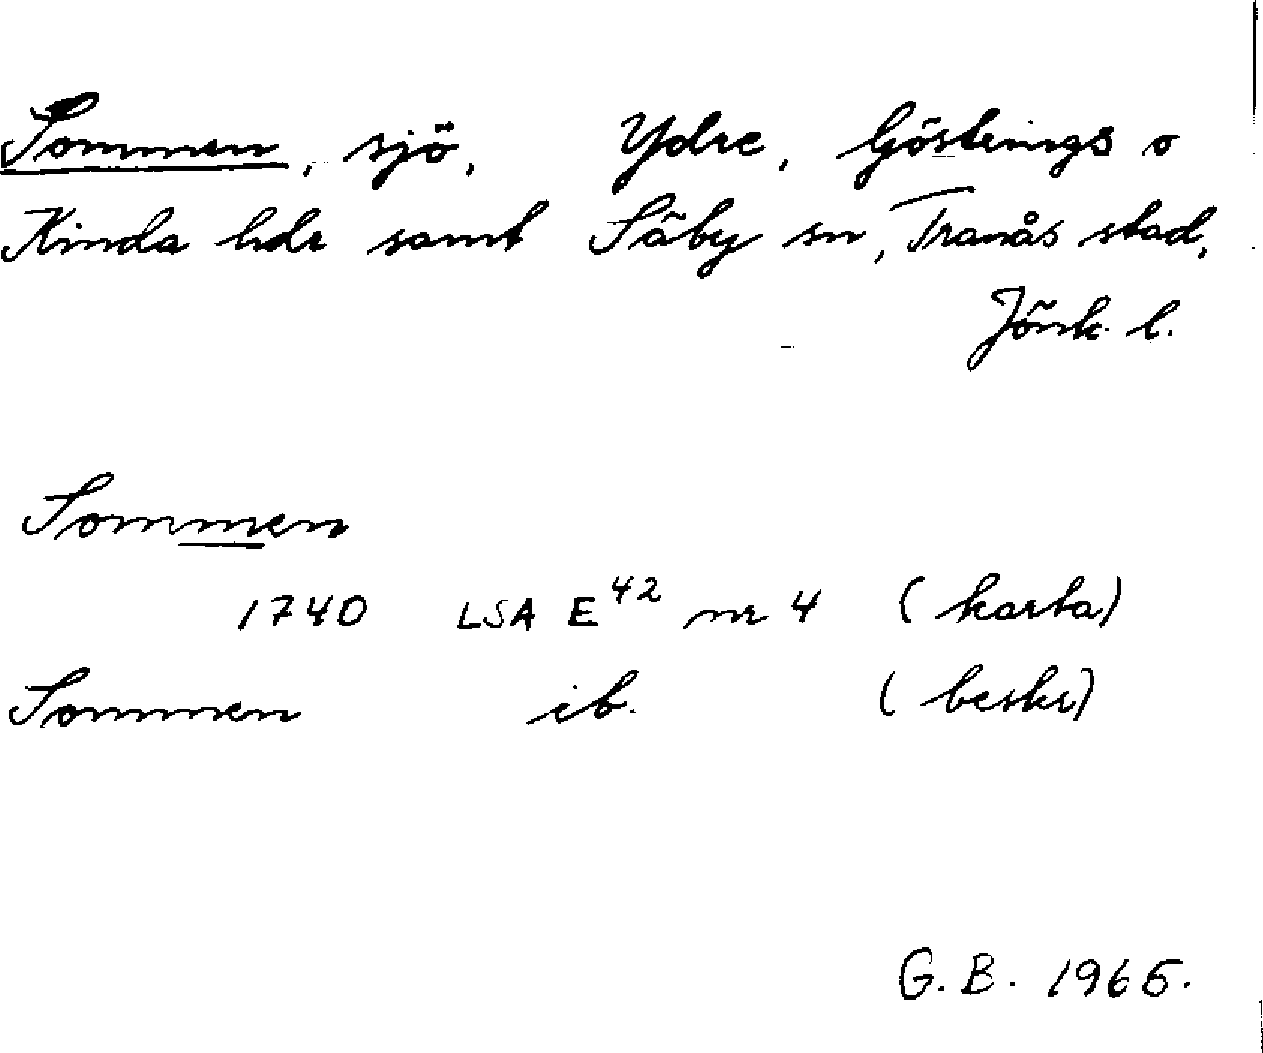 Sommen, sjö, Ydre, Göstrings o
Kinda hdr samt Säby sn, Tranås stad,
Jönk. l.
Sommen
1740 LSA E42 nr 4 (karta)
Sommen ib. (beskr)
G. B. 1965.